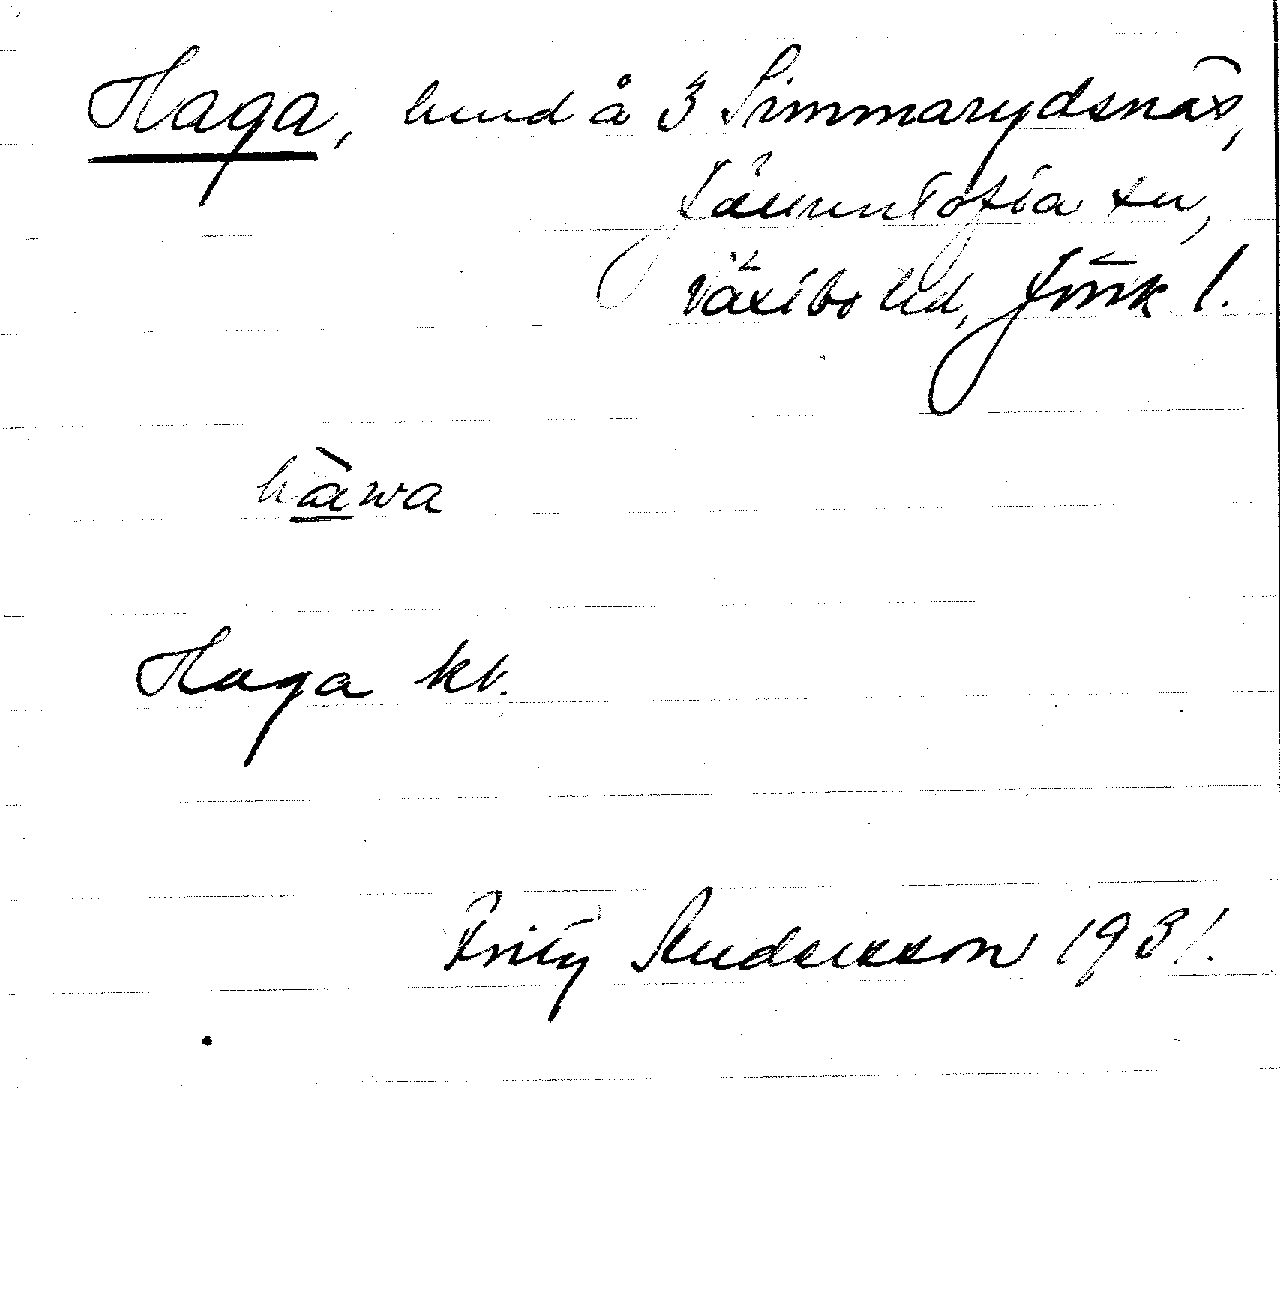 Haga, lund å 3 Simmarydsnäs,
Järsntofta sn,
Västbo hd, Jönk l.
hàwa
Haga kt.
Frity Andersson 1931.